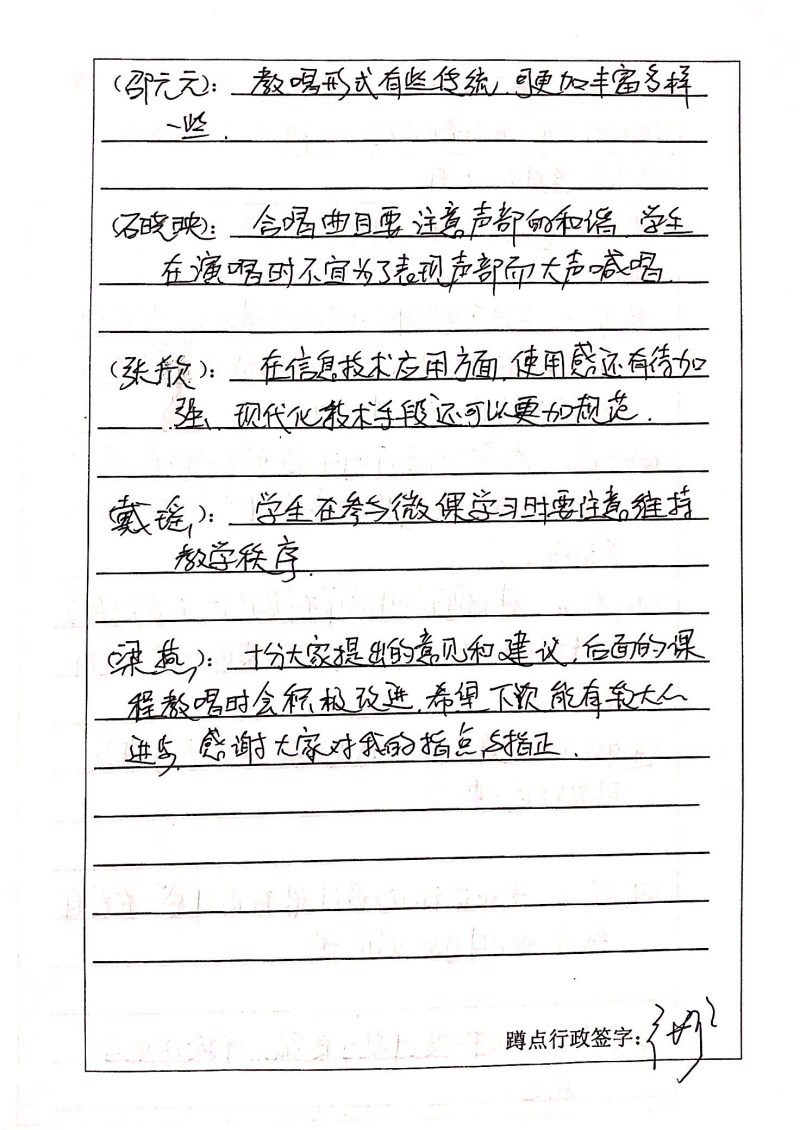 (邵元元): 教唱形式有些传统,可更加丰富多样
一些.
(石晓映): 合唱曲目要注意声部的和谐,学生
在演唱时不宜为了表现声部而大声喊唱.
(张欣): 在信息技术应用方面,使用感还有待加
强、现代化教术手段还可以更加规范.
(戴瑶): 学生在参与微课学习时要注意维持
教学秩序.
(梁燕): 十分大家提出的意见和建议,后面的课
程教唱时会积极改进,希望下次能有较大的
进步,感谢大家对我的指点与指正.
蹲点行政签字: